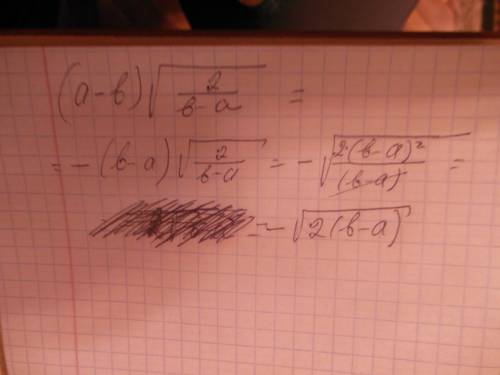 (a-b)√(2/(b-a)) =
= -(b-a)√(2/(b-a)) = -√(2·(b-a)²/(b-a)) =
= -√(2(b-a))